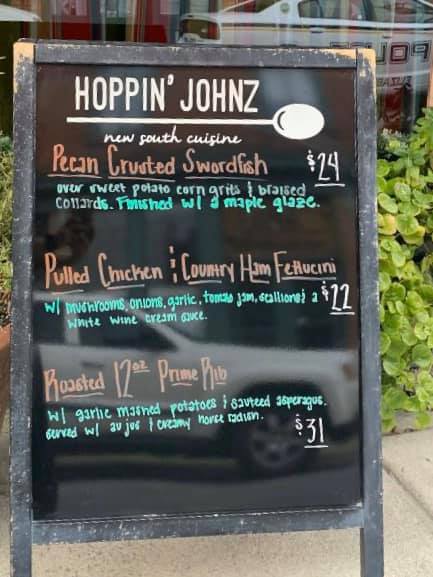 HOPPIN' JOHNZ
new south cuisine
Pecan Crusted Swordfish $24
over sweet potato corn grits & braised
collards. Finished w/ a maple glaze.
Pulled Chicken & Country Ham Fettucini
w/ mushrooms, onions, garlic, tomato jam, scallions & a $22
white wine cream sauce.
Roasted 12oz Prime Rib
w/ garlic mashed potatoes & sauteed asparagus.
served w/ au jus & creamy horse radish.
$31